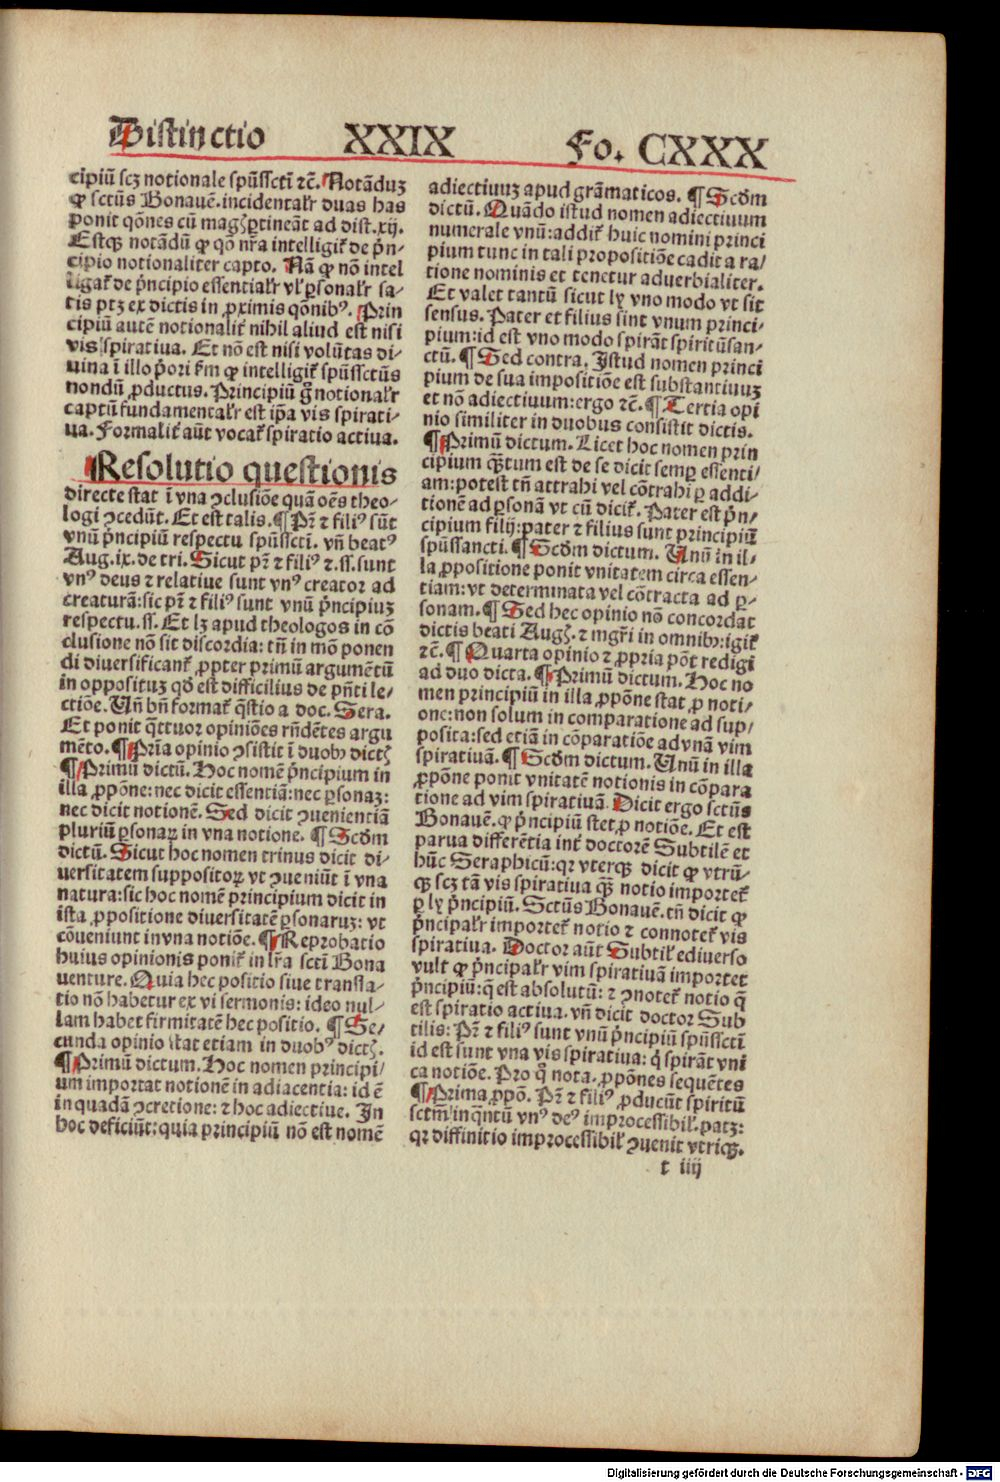 Distinctio XXIX Fo. CXXX
cipiū scꝫ notionale spūssctī ⁊c̄. Notāduꝫ
ꝙ sctūs Bonauē. incidentalr̄ duas has
ponit qōnes cū magꝭ ꝑtineāt ad dist. xij.
Estqꝫ notādū ꝙ qō nr̄a intelligit̄ de p̄n-
cipio notionaliter capto. Nā ꝙ nō intel
ligat̄ de p̄ncipio essentialr̄ vl̓ ꝑsonalr̄ sa-
tis ptꝫ ex dictis in ꝓximis qōnibꝰ. Prin
cipiū autē notionalit̄ nihil aliud est nisi
vis spiratiua. Et nō est nisi volūtas di-
uina ī illo p̄ori s̄m ꝙ intelligit̄ spūssctūs
nondū ꝓductus. Principiū g̊ notionalr̄
captū fundamentalr̄ est ip̄a vis spirati-
ua. Formalit̄ aūt vocat̄ spiratio actiua.
¶ Resolutio questionis
directe stat ī vna ꝯclusiōe quā oēs theo-
logi ꝯcedūt. Et est talis. ¶ Pr̄ ⁊ filiꝰ sūt
vnū p̄ncipiū respectu spūssctī. vn̄ beatꝰ
Aug. ix. de tri. Sicut pr̄ ⁊ filiꝰ ⁊. ss. sunt
vnꝰ deus ⁊ relatiue sunt vnꝰ creator ad
creaturā: sic pr̄ ⁊ filiꝰ sunt vnū p̄ncipiuꝫ
respectu. ss. Et lꝫ apud theologos in cō
clusione nō sit discordia: tn̄ in mō ponen
di diuersificant̄ ꝓpter primū argumētū
in opposituꝫ qd̄ est difficilius de pn̄ti le/
ctiōe. Vn̄ bn̄ format̄ q̄stio a doc. Sera.
Et ponit q̄ttuor opiniōes rn̄dētes argu
mēto. ¶ Prīa opinio ꝯsistit ī duobꝫ dictꝭ
¶ Primū dictū. Hoc nomē p̄ncipium in
illa ꝓpōne: nec dicit essentiā: nec ꝑsonaꝫ:
nec dicit notionē. Sed dicit ꝯuenientiā
pluriū ꝑsonaꝝ in vna notione. ¶ Scd̄m
dictū. Sicut hoc nomen trinus dicit di-
uersitatem suppositoꝝ vt ꝯueniūt ī vna
natura: sic hoc nomē principium dicit in
ista ꝓpositione diuersitatē ꝑsonaruꝫ: vt
cōueniunt in vna notiōe. ¶ Reprobatio
huius opinionis ponit̄ in lr̄a sctī Bona
uenture. Quia hec positio siue transla-
tio nō habetur ex vi sermonis: ideo nul-
lam habet firmitatē hec positio. ¶ Se/
cunda opinio stat etiam in duobꝰ dictꝭ.
¶ Primū dictum. Hoc nomen principi/
um importat notionē in adiacentia: id ē
in quadā ꝯcretione: ⁊ hoc adiectiue. In
hoc deficiūt: quia principiū nō est nomē
adiectiuuꝫ apud grāmaticos. ¶ Scd̄m
dictū. Quādo istud nomen adiectiuum
numerale vnū: addit̄ huic nomini princi
pium tunc in tali propositiōe cadit a ra/
tione nominis et tenetur aduerbialiter.
Et valet tantū sicut ly vno modo vt sit
sensus. Pater et filius sint vnum princi-
pium: id est vno modo spirāt spiritūsan-
ctū. ¶ Sed contra. Istud nomen princi
pium de sua impositiōe est substantiuuꝫ
et nō adiectiuum: ergo ⁊c̄. ¶ Tertia opi
nio similiter in duobus consistit dictis.
¶ Primū dictum. Licet hoc nomen prin
cipium qꝫtum est de se dicit semꝑ essenti/
am: potest tn̄ attrahi vel cōtrahi ꝑ addi-
tionē ad ꝑsonā vt cū dicit̄. Pater est p̄n-
cipium filij: pater ⁊ filius sunt principiū
spūssancti. ¶ Scd̄m dictum. Vnū in il-
la ꝓpositione ponit vnitatem circa essen-
tiam: vt determinata vel cōtracta ad ꝑ-
sonam. ¶ Sed hec opinio nō concordat
dictis beati Augꝭ. ⁊ mgr̄i in omnibꝫ: igit̄
⁊c̄. ¶ Quarta opinio ⁊ ꝓpria pōt redigi
ad duo dicta. ¶ Primū dictum. Hoc no
men principiū in illa ꝓpōne stat ꝓ noti-
one: non solum in comparatione ad sup/
posita: sed etiā in cōparatiōe ad vnā vim
spiratiuā. ¶ Scd̄m dictum. Vnū in illa
ꝓpōne ponit vnitatē notionis in cōpara
tione ad vim spiratiuā. Dicit ergo sctūs
Bonauē. ꝙ p̄ncipiū stet ꝓ notiōe. Et est
parua differētia int̄ doctorē Subtilē et
hūc Seraphicū: qꝛ vterqꝫ dicit ꝙ vtrū-
qꝫ scꝫ tā vis spiratiua qꝫ notio importet̄
ꝑ ly p̄ncipiū. Sctūs Bonauē. tn̄ dicit ꝙ
p̄ncipalr̄ importet̄ notio ⁊ connotet̄ vis
spiratiua. Doctor aūt Subtil̓ ediuerso
vult ꝙ p̄ncipalr̄ vim spiratiuā importet
p̄ncipiū: q̄ est absolutū: ⁊ ꝯnotet̄ notio q̄
est spiratio actiua. vn̄ dicit doctor Sub
tilis: Pr̄ ⁊ filiꝰ sunt vnū p̄ncipiū spūssctī
id est sunt vna vis spiratiua: q̓ spirāt vni
ca notiōe. Pro q̊ nota. ꝓpōnes sequētes
¶ Prima ꝓpō. Pr̄ ⁊ filiꝰ ꝓducūt spiritū
sctm̄ inq̄ntū vnꝰ deꝰ improcessibil̓. patꝫ:
qꝛ diffinitio improcessibil̓ ꝯuenit vtriqꝫ.
t iiij
Digitalisierung gefördert durch die Deutsche Forschungsgemeinschaft - DFG